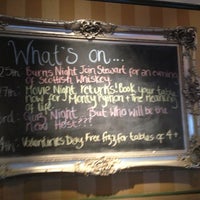 What's on...
25th Burns Night Join Stewart for an evening
of Scottish Whiskey
Movie Night returns! Book your table
now for Monty Python + The meaning
of life
Quiz Night. But Who will be the
new Host???
Valentines Day Free Fizz for tables of 4+